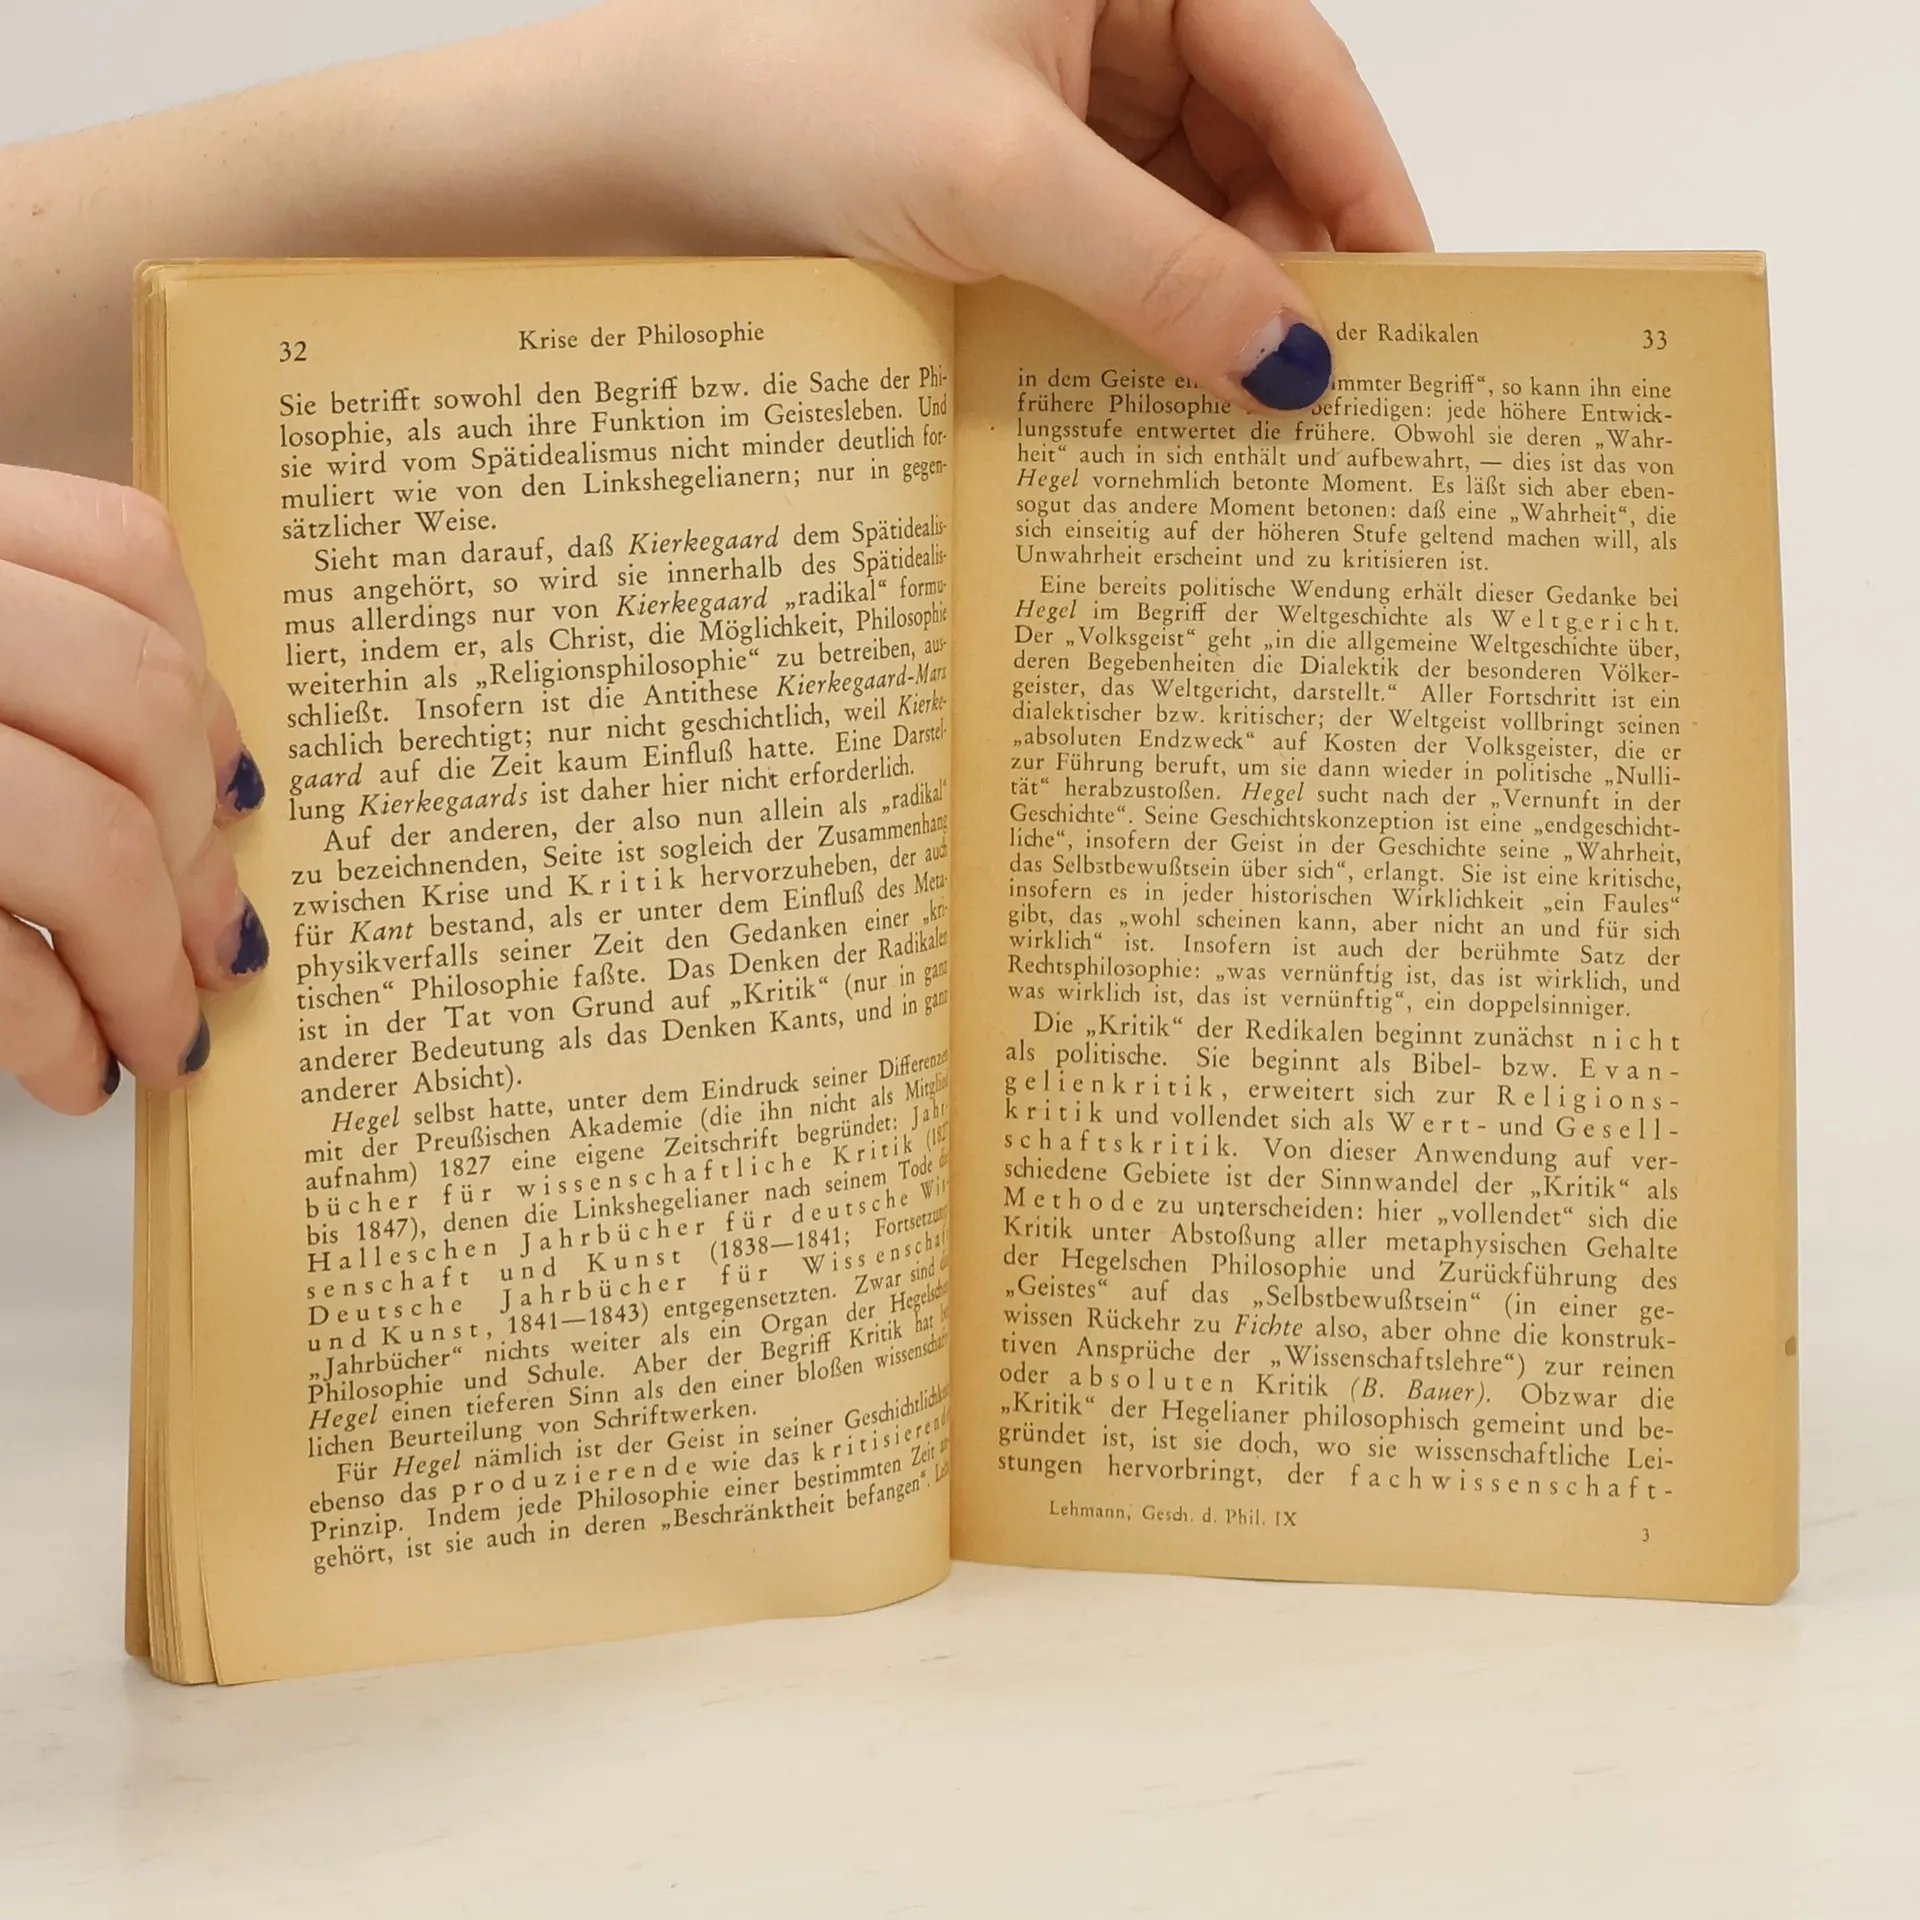 32
Krise der Philosophie
Sie betrifft sowohl den Begriff bzw. die Sache der Phi-
losophie, als auch ihre Funktion im Geistesleben. Und
sie wird vom Spätidealismus nicht minder deutlich for-
muliert wie von den Linkshegelianern; nur in gegen-
sätzlicher Weise.
Sieht man darauf, daß Kierkegaard dem Spätidealis-
mus angehört, so wird sie innerhalb des Spätidealis-
mus allerdings nur von Kierkegaard „radikal“ formu-
liert, indem er, als Christ, die Möglichkeit, Philosophie
weiterhin als „Religionsphilosophie“ zu betreiben, aus-
schließt. Insofern ist die Antithese Kierkegaard-Marx
sachlich berechtigt; nur nicht geschichtlich, weil Kierke-
gaard auf die Zeit kaum Einfluß hatte. Eine Darstel-
lung Kierkegaards ist daher hier nicht erforderlich.
Auf der anderen, der also nun allein als „radikal“
zu bezeichnenden, Seite ist sogleich der Zusammenhang
zwischen Krise und Kritik hervorzuheben, der auch
für Kant bestand, als er unter dem Einfluß des Meta-
physikverfalls seiner Zeit den Gedanken einer „kri-
tischen“ Philosophie faßte. Das Denken der Radikalen
ist in der Tat von Grund auf „Kritik“ (nur in ganz
anderer Bedeutung als das Denken Kants, und in ganz
anderer Absicht).
Hegel selbst hatte, unter dem Eindruck seiner Differenzen
mit der Preußischen Akademie (die ihn nicht als Mitglied
aufnahm) 1827 eine eigene Zeitschrift begründet: Jahr-
bücher für wissenschaftliche Kritik (1827
bis 1847), denen die Linkshegelianer nach seinem Tode die
Halleschen Jahrbücher für deutsche Wis-
senschaft und Kunst (1838—1841; Fortsetzung
Deutsche Jahrbücher für Wissenschaft
und Kunst, 1841—1843) entgegensetzten. Zwar sind die
„Jahrbücher“ nichts weiter als ein Organ der Hegelschen
Philosophie und Schule. Aber der Begriff Kritik hat bei
Hegel einen tieferen Sinn als den einer bloßen wissenschaft-
lichen Beurteilung von Schriftwerken.
Für Hegel nämlich ist der Geist in seiner Geschichtlichkeit
ebenso das produzierende wie das kritisierende
Prinzip. Indem jede Philosophie einer bestimmten Zeit an-
gehört, ist sie auch in deren „Beschränktheit befangen“.
der Radikalen
33
in dem Geiste immter Begriff“, so kann ihn eine
frühere Philosophie befriedigen: jede höhere Entwick-
lungsstufe entwertet die frühere. Obwohl sie deren „Wahr-
heit“ auch in sich enthält und aufbewahrt, — dies ist das von
Hegel vornehmlich betonte Moment. Es läßt sich aber eben-
sogut das andere Moment betonen: daß eine „Wahrheit“, die
sich einseitig auf der höheren Stufe geltend machen will, als
Unwahrheit erscheint und zu kritisieren ist.
Eine bereits politische Wendung erhält dieser Gedanke bei
Hegel im Begriff der Weltgeschichte als Weltgericht.
Der „Volksgeist“ geht „in die allgemeine Weltgeschichte über,
deren Begebenheiten die Dialektik der besonderen Völker-
geister, das Weltgericht, darstellt.“ Aller Fortschritt ist ein
dialektischer bzw. kritischer; der Weltgeist vollbringt seinen
„absoluten Endzweck“ auf Kosten der Volksgeister, die er
zur Führung beruft, um sie dann wieder in politische „Nulli-
tät“ herabzustoßen. Hegel sucht nach der „Vernunft in der
Geschichte“. Seine Geschichtskonzeption ist eine „endgeschicht-
liche“, insofern der Geist in der Geschichte seine „Wahrheit,
das Selbstbewußtsein über sich“, erlangt. Sie ist eine kritische,
insofern es in jeder historischen Wirklichkeit „ein Faules“
gibt, das „wohl scheinen kann, aber nicht an und für sich
wirklich“ ist. Insofern ist auch der berühmte Satz der
Rechtsphilosophie: „was vernünftig ist, das ist wirklich, und
was wirklich ist, das ist vernünftig“, ein doppelsinniger.
Die „Kritik“ der Redikalen beginnt zunächst nicht
als politische. Sie beginnt als Bibel- bzw. Evan-
gelienkritik, erweitert sich zur Religions-
kritik und vollendet sich als Wert- und Gesell-
schaftskritik. Von dieser Anwendung auf ver-
schiedene Gebiete ist der Sinnwandel der „Kritik“ als
Methode zu unterscheiden: hier „vollendet“ sich die
Kritik unter Abstoßung aller metaphysischen Gehalte
der Hegelschen Philosophie und Zurückführung des
„Geistes“ auf das „Selbstbewußtsein“ (in einer ge-
wissen Rückehr zu Fichte also, aber ohne die konstruk-
tiven Ansprüche der „Wissenschaftslehre“) zur reinen
oder absoluten Kritik (B. Bauer). Obzwar die
„Kritik“ der Hegelianer philosophisch gemeint und be-
gründet ist, ist sie doch, wo sie wissenschaftliche Lei-
stungen hervorbringt, der fachwissenschaft-
Lehmann, Gesch. d. Phil. IX
3